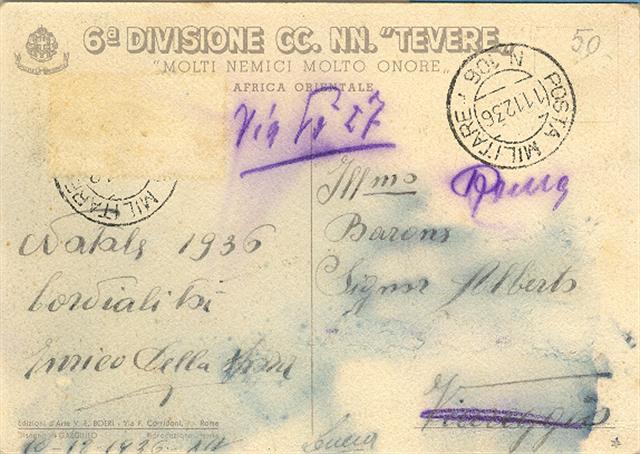 6ª DIVISIONE CC. NN. "TEVERE
"MOLTI NEMICI MOLTO ONORE"
AFRICA ORIENTALE
50
POSTA MILITARE N. 106
11 12 36
MILITARE
Natale 1936
Cordialità
Enrico Della
Ill mo
Barone
Signor Alberto
Roma
Viareggio
Lucca
Edizioni d'Arte V. E. BOERI - Via F. Corridoni, Roma
Disegno di
Riproduzione
1936